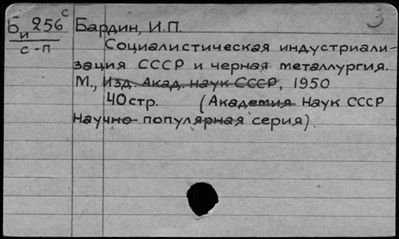 Би 256с Бардин, И.П.
с-п
Социалистическая индустриали-
зация СССР и черная металлургия.
М., Изд. Акад. наук СССР, 1950
40стр. (Академия Наук СССР
Научно-популярная серия).